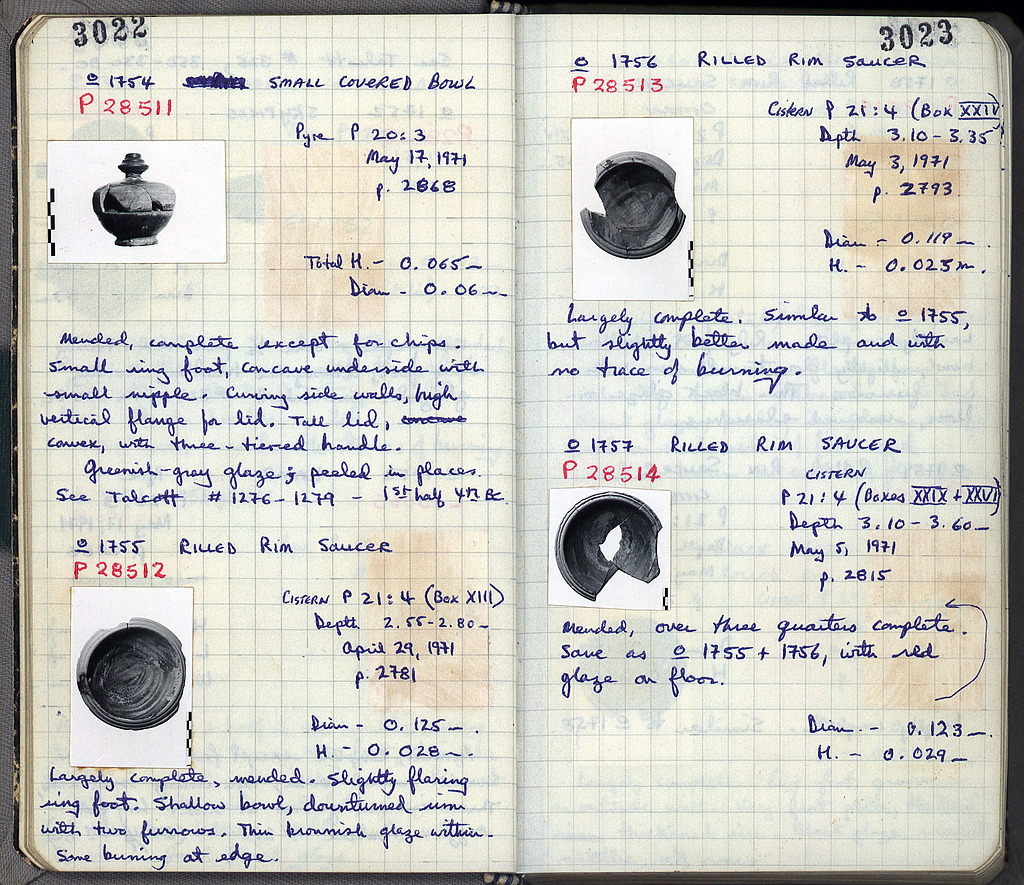 3022
o 1754 SMALL COVERED BOWL
P 28511
Pyre P 20:3
May 17, 1971
p. 2868
Total H. - 0.065 m
Diam - 0.06 m
Mended, complete except for chips.
Small ring foot, concave underside with
small nipple. Curving side walls, high
vertical flange for lid. Tall lid, concave
convex, with three-tiered handle.
Greenish-gray glaze; peeled in places.
See Talcott # 1276-1279 - 1st half 4th BC.
o 1755 RILLED RIM SAUCER
P 28512
CISTERN P 21:4 (Box XIII)
Depth 2.55-2.80 m
April 29, 1971
p. 2781
Diam - 0.125 m.
H. - 0.028 m.
Largely complete, mended. Slightly flaring
ring foot. Shallow bowl, downturned rim
with two furrows. Thin brownish glaze within.
Some burning at edge.
3023
o 1756 RILLED RIM SAUCER
P 28513
CISTERN P 21:4 (Box XXIV)
Depth 3.10-3.35
May 3, 1971
p. 2793
Diam - 0.119 m.
H. - 0.025 m.
Largely complete. Similar to o 1755,
but slightly better made and with
no trace of burning.
o 1757 RILLED RIM SAUCER
P 28514
CISTERN
P 21:4 (Boxes XXIX + XXVI)
Depth 3.10-3.60 m
May 5, 1971
p. 2815
Mended, over three quarters complete.
Same as o 1755 + 1756, with red
glaze on floor.
Diam. - 0.123 m.
H. - 0.029 m